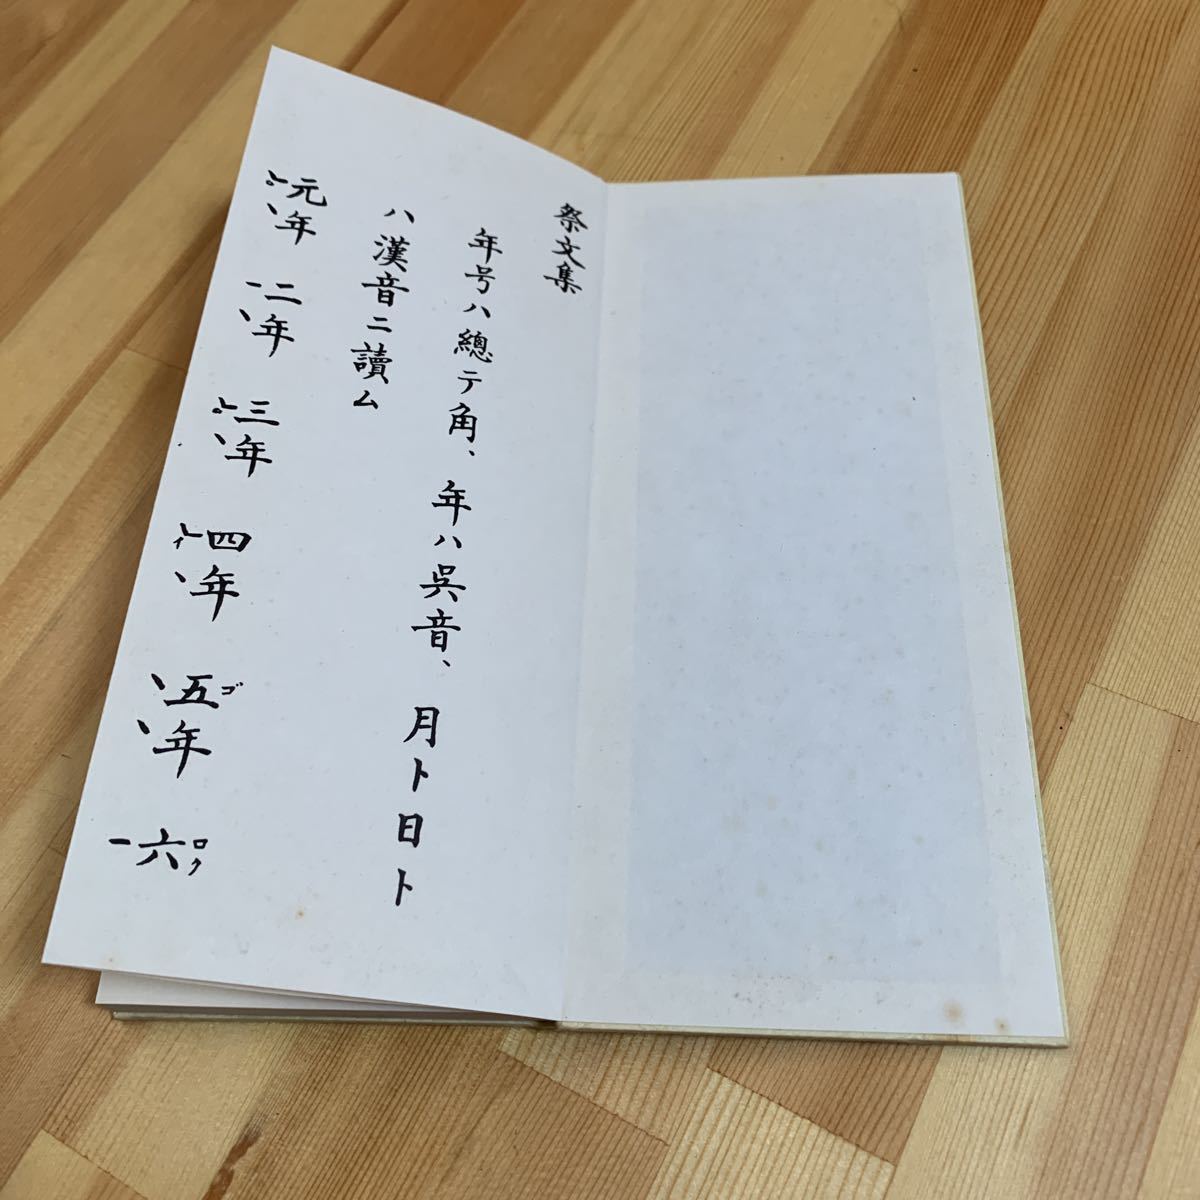 祭文集
年号ハ總テ角、年ハ呉音、月ト日ト
ハ漢音ニ讀ム
元年 二年 三年 四年 五年 六
ゴ
ロク